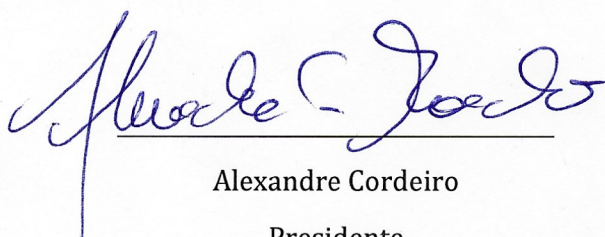 Alexandre Cordeiro
Presidente